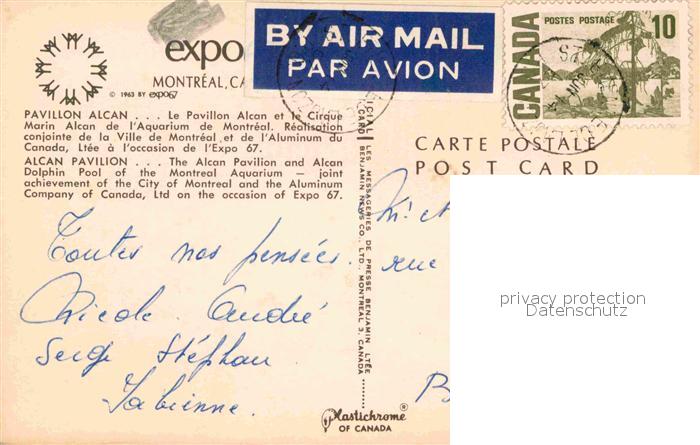 expo
BY AIR MAIL
PAR AVION
MONTRÉAL, CA
© 1963 BY expo67
CANADA
POSTES POSTAGE 10
PAVILLON ALCAN . . . Le Pavillon Alcan et le Cirque
Marin Alcan de l'Aquarium de Montréal. Réalisation
conjointe de la Ville de Montréal et de l'Aluminum du
Canada, Ltée à l'occasion de l'Expo 67.
ALCAN PAVILION . . . The Alcan Pavilion and Alcan
Dolphin Pool of the Montreal Aquarium — joint
achievement of the City of Montreal and the Aluminum
Company of Canada, Ltd on the occasion of Expo 67.
CARTE POSTALE
POST CARD
LES MESSAGERIES DE PRESSE BENJAMIN LTÉE
CARD BENJAMIN NEWS CO., LTD., MONTREAL 3, CANADA
Toutes nos pensées.
Nicole André
Serge Stéphan
Fabienne.
Mr et
rue
B
Plastichrome®
OF CANADA
privacy protection
Datenschutz